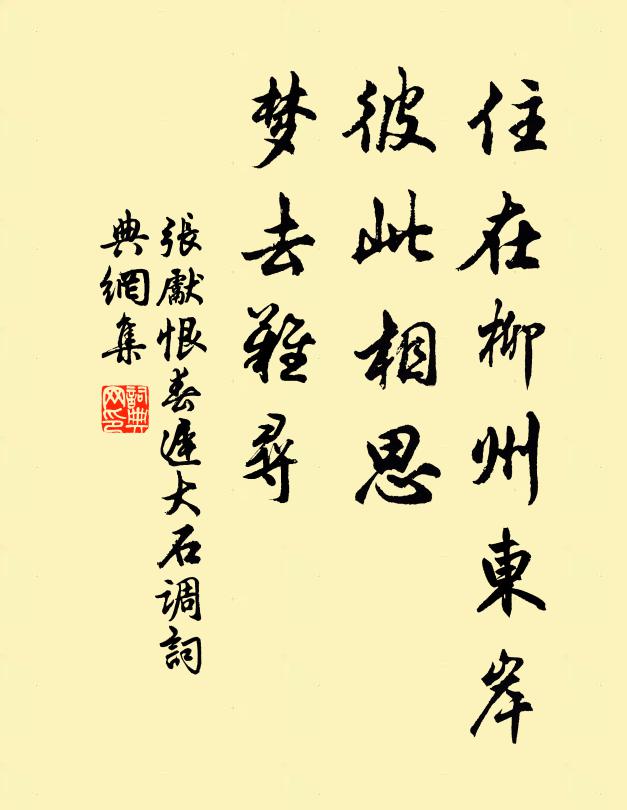 住在柳州東岸
彼此相思
梦去難尋
張勮恨春遲大石調詞
典網集
詞典
网印